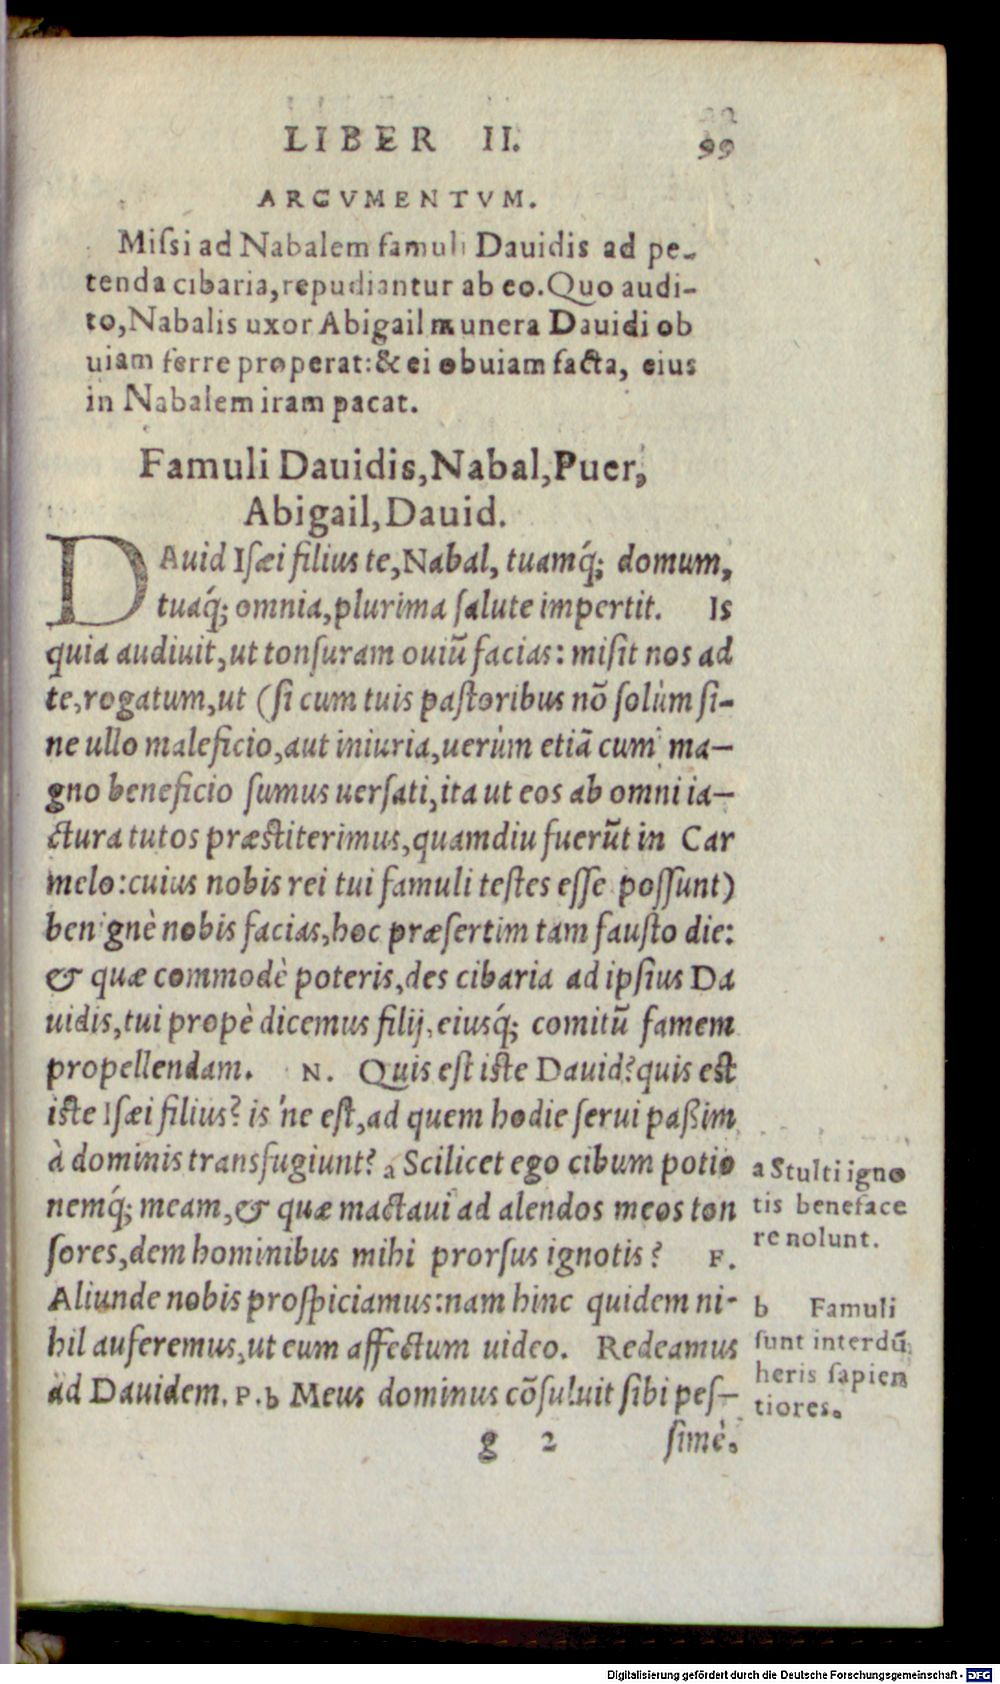 LIBER II. 99
ARGVMENTVM.
Miſsi ad Nabalem famuli Dauidis ad pe-
tenda cibaria, repudiantur ab eo. Quo audi-
to, Nabalis uxor Abigail munera Dauidi ob
uiam ferre properat: & ei obuiam facta, eius
in Nabalem iram pacat.
Famuli Dauidis, Nabal, Puer,
Abigail, Dauid.
DAuid Iſæi filius te, Nabal, tuamq́; domum,
tuaq́; omnia, plurima ſalute impertit. Is
quia audiuit, ut tonſuram ouiū facias: miſit nos ad
te, rogatum, ut (ſi cum tuis paſtoribus nō ſolùm ſi-
ne ullo maleficio, aut iniuria, uerùm etiā cum ma-
gno beneficio ſumus uerſati, ita ut eos ab omni ia-
ctura tutos præſtiterimus, quamdiu fuerūt in Car
melo: cuius nobis rei tui famuli teſtes eſſe poſſunt)
benignè nobis facias, hoc præſertim tam fauſto die:
& quæ commodè poteris, des cibaria ad ipſius Da
uidis, tui propè dicemus filij, eiusq́; comitū famem
propellendam. N. Quis eſt iſte Dauid? quis eſt
iſte Iſæi filius? is 'ne eſt, ad quem hodie ſerui paßim
à dominis transfugiunt? a Scilicet ego cibum potio
nemq́; meam, & quæ mactaui ad alendos meos ton
ſores, dem hominibus mihi prorſus ignotis? F.
Aliunde nobis proſpiciamus: nam hinc quidem ni-
hil auferemus, ut eum affectum uideo. Redeamus
ad Dauidem. P. b Meus dominus cōſuluit ſibi peſ-
g 2 ſimè.
a Stulti igno
tis beneface
re nolunt.
b Famuli
ſunt interdū
heris ſapien
tiores.
Digitalisierung gefördert durch die Deutsche Forschungsgemeinschaft - DFG